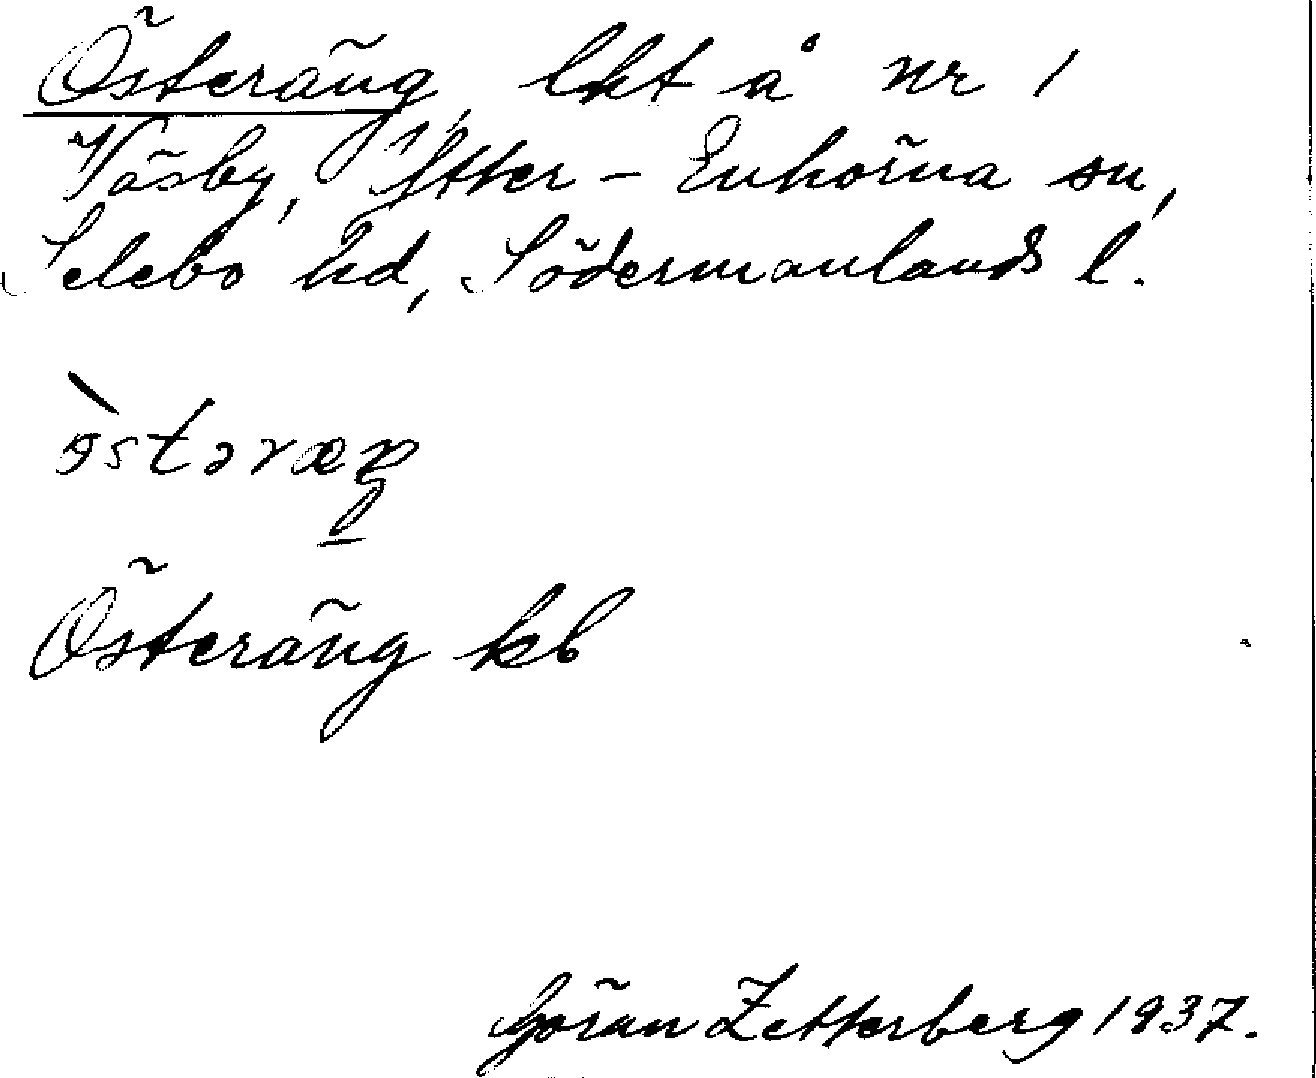 Österäng, lht å nr 1
Väsby, Ytter-Enhörna sn,
Selebo hd, Södermanlands l.
Österäng kb
Göran Zetterberg 1937.